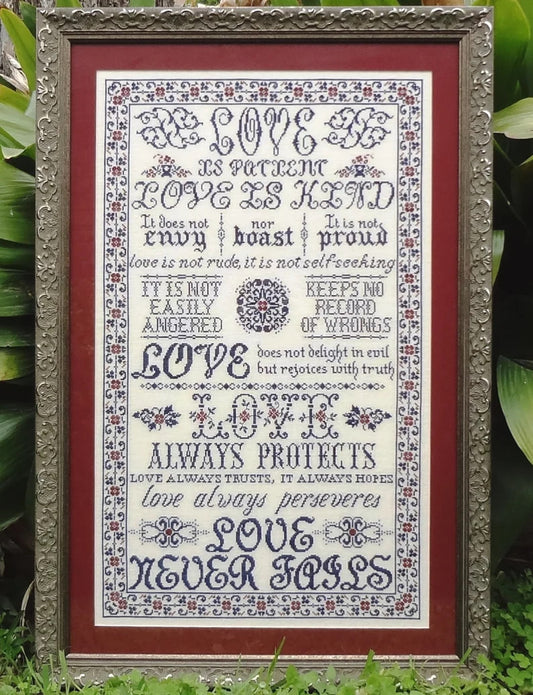 LOVE
IS PATIENT
LOVE IS KIND
It does not nor It is not
envy boast proud
love is not rude, it is not self-seeking
IT IS NOT KEEPS NO
EASILY RECORD
ANGERED OF WRONGS
LOVE does not delight in evil
but rejoices with truth
LOVE
ALWAYS PROTECTS
LOVE ALWAYS TRUSTS, IT ALWAYS HOPES
love always perseveres
LOVE
NEVER FAILS